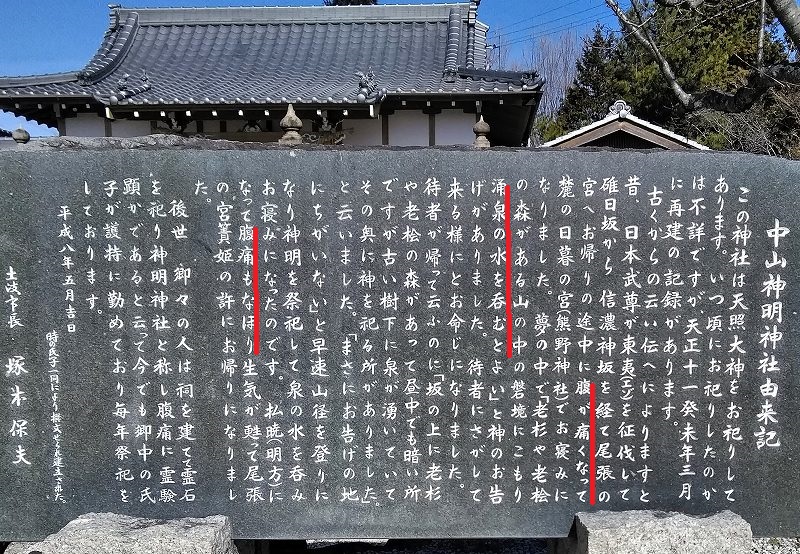 中山神明神社由来記
この神社は天照大神をお祀りして
あります。いつ頃にお祀りしたのか
は不詳ですが、天正十一癸未年三月
に再建の記録があります。
古くからの云い伝へによりますと
昔、日本武尊が東夷(エゾ)を征伐して
碓日坂から信濃神坂を経て尾張の
宮へお帰りの途中に腹が痛くなって
麓の日暮の宮(熊野神社)でお寝みに
なりました。夢の中で「老杉や老桧
の森がある山の中の磐境にこもり
涌泉の水を呑むとよい」と神のお告
げがありました。待者にさがして
来る様にとお命じになりました。
待者が帰って云ふのに「坂の上に老杉
や老桧の森があって昼中でも暗い所
ですが古い樹下に泉が湧いていて
その奥に神を祀る所がありました」
と云いました。「まさにお告げの地
にちがいない」と早速山径を登りに
なり神明を祭祀して泉の水を呑み
お寝みになったのです。払暁(明方)に
なって腹痛もなほり生気が甦って尾張
の宮簀姫の許にお帰りになりまし
た。
後世 郷々の人は祠を建てて霊石
を祀り神明神社と称し腹痛に霊験
顕かであると云って今でも郷中の氏
子が護持に勤めており毎年祭祀を
しております。
平成八年五月吉日
時の氏子一同により撰文せられ建立された。
土岐市長 塚本保夫